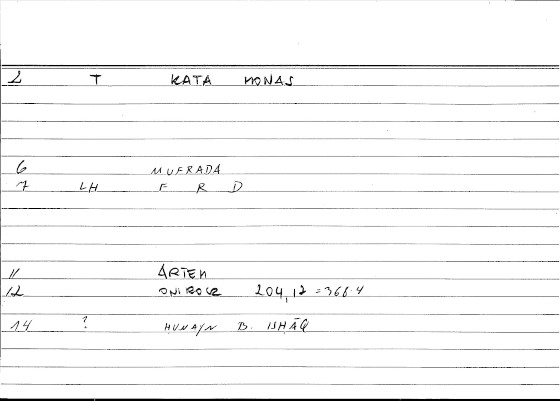 2 T KATA MONAS
6 MUFRADA
7 LH F R D
11 ARTEM
12 ONIROCR 204,12 = 366.4
14 ? HUNAYN B. ISḤĀQ